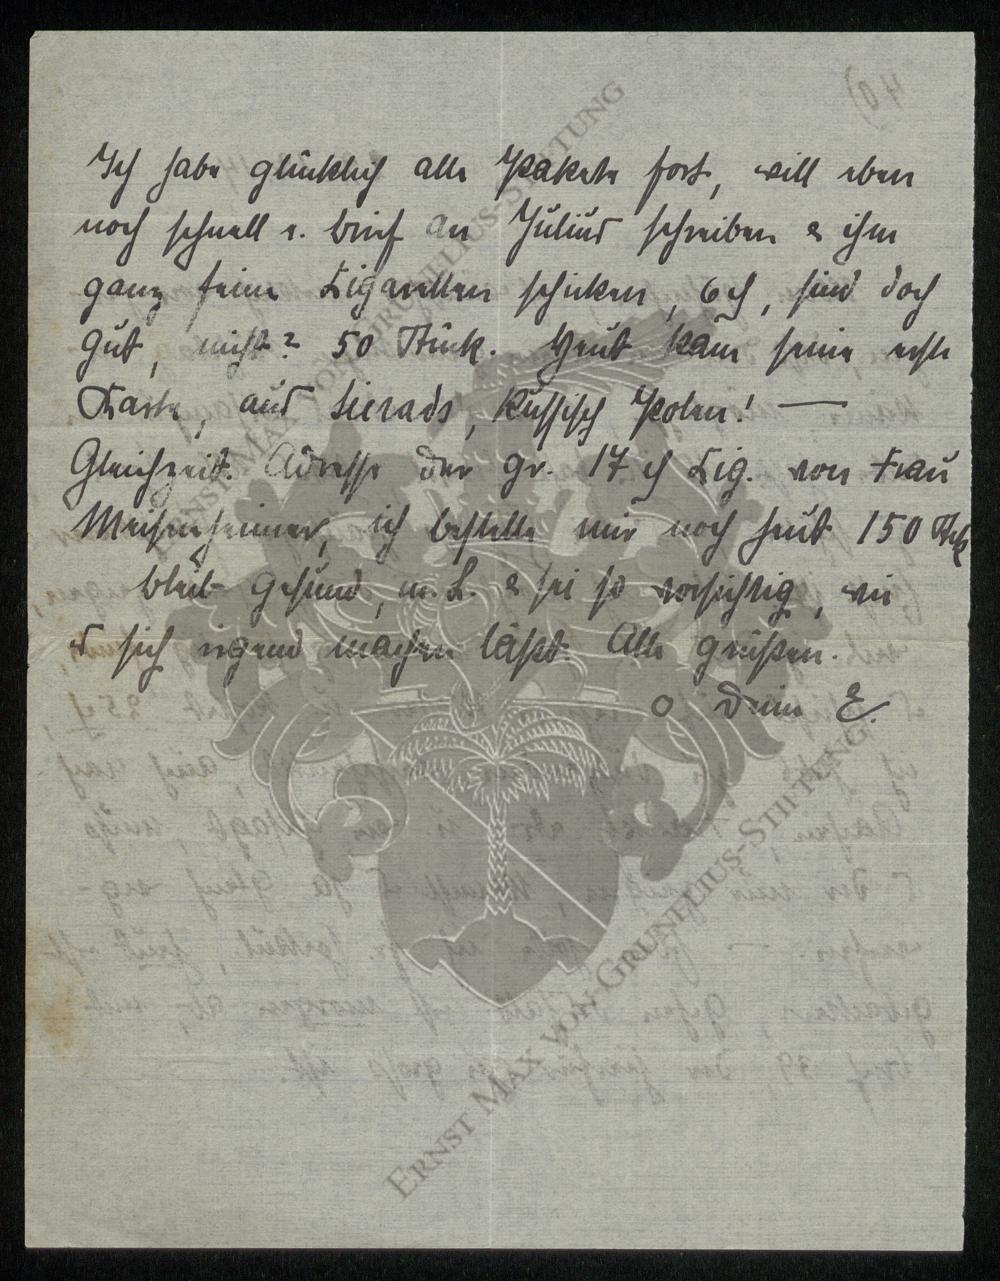 Ich habe glücklich alle Pakete fort, will eben
noch schnell e. Brief an Julius schreiben & ihm
ganz feine Zigaretten schicken, 6 ₰, sind doch
gut, nicht? 50 Stück. Heut kam seine erste
Karte, aus Sieradz, Russisch Polen! —
Gleichzeit. Adresse der gr. 17 ₰ Zig. von Frau
Meisenheimer, ich bestelle mir noch heut 150 Stck
Bleib gesund, m. L. & sei so vorsichtig, wie
es sich irgend machen läßt. Alle grüßen.
O Deine E.
ERNST MAX VON GRUNELIUS-STIFTUNG
ERNST MAX VON GRUNELIUS-STIFTUNG